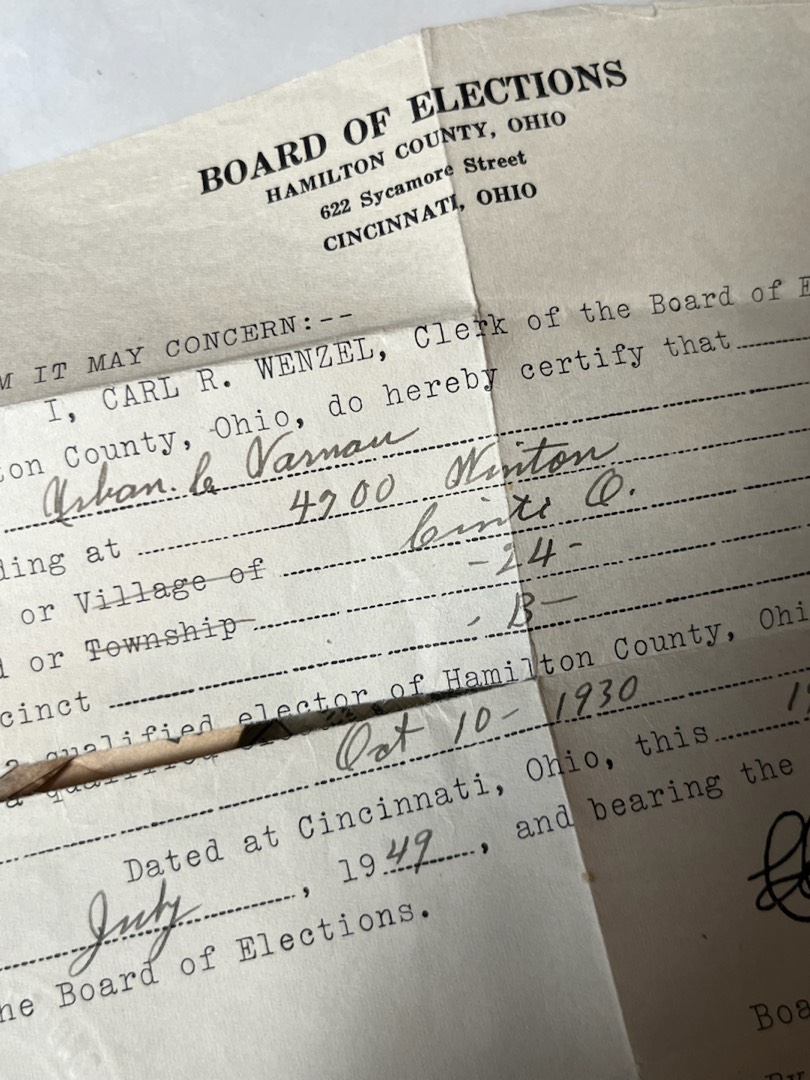 BOARD OF ELECTIONS
HAMILTON COUNTY, OHIO
622 Sycamore Street
CINCINNATI, OHIO
M IT MAY CONCERN:--
I, CARL R. WENZEL, Clerk of the Board of E
ton County, Ohio, do hereby certify that
Urban. C Varnau
ding at 4700 Winton
or Village of Cinti O.
d or Township -24-
cinct - B-
a qualified elector of Hamilton County, Ohi
Oct 10- 1930
Dated at Cincinnati, Ohio, this 1
July, 1949, and bearing the
he Board of Elections.
Boa